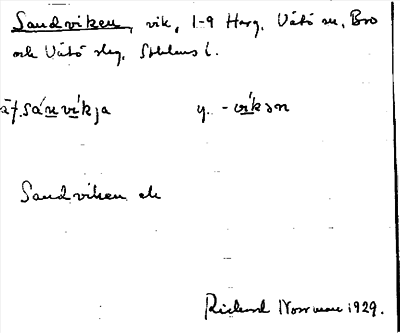 Sandviken, vik, 1-9 Harg, Vätö sn, Bro
och Vätö slg, Sthlms l.
äf. sánvíkja y. -víkən
Sandviken ek
Rickard Norrman 1929.